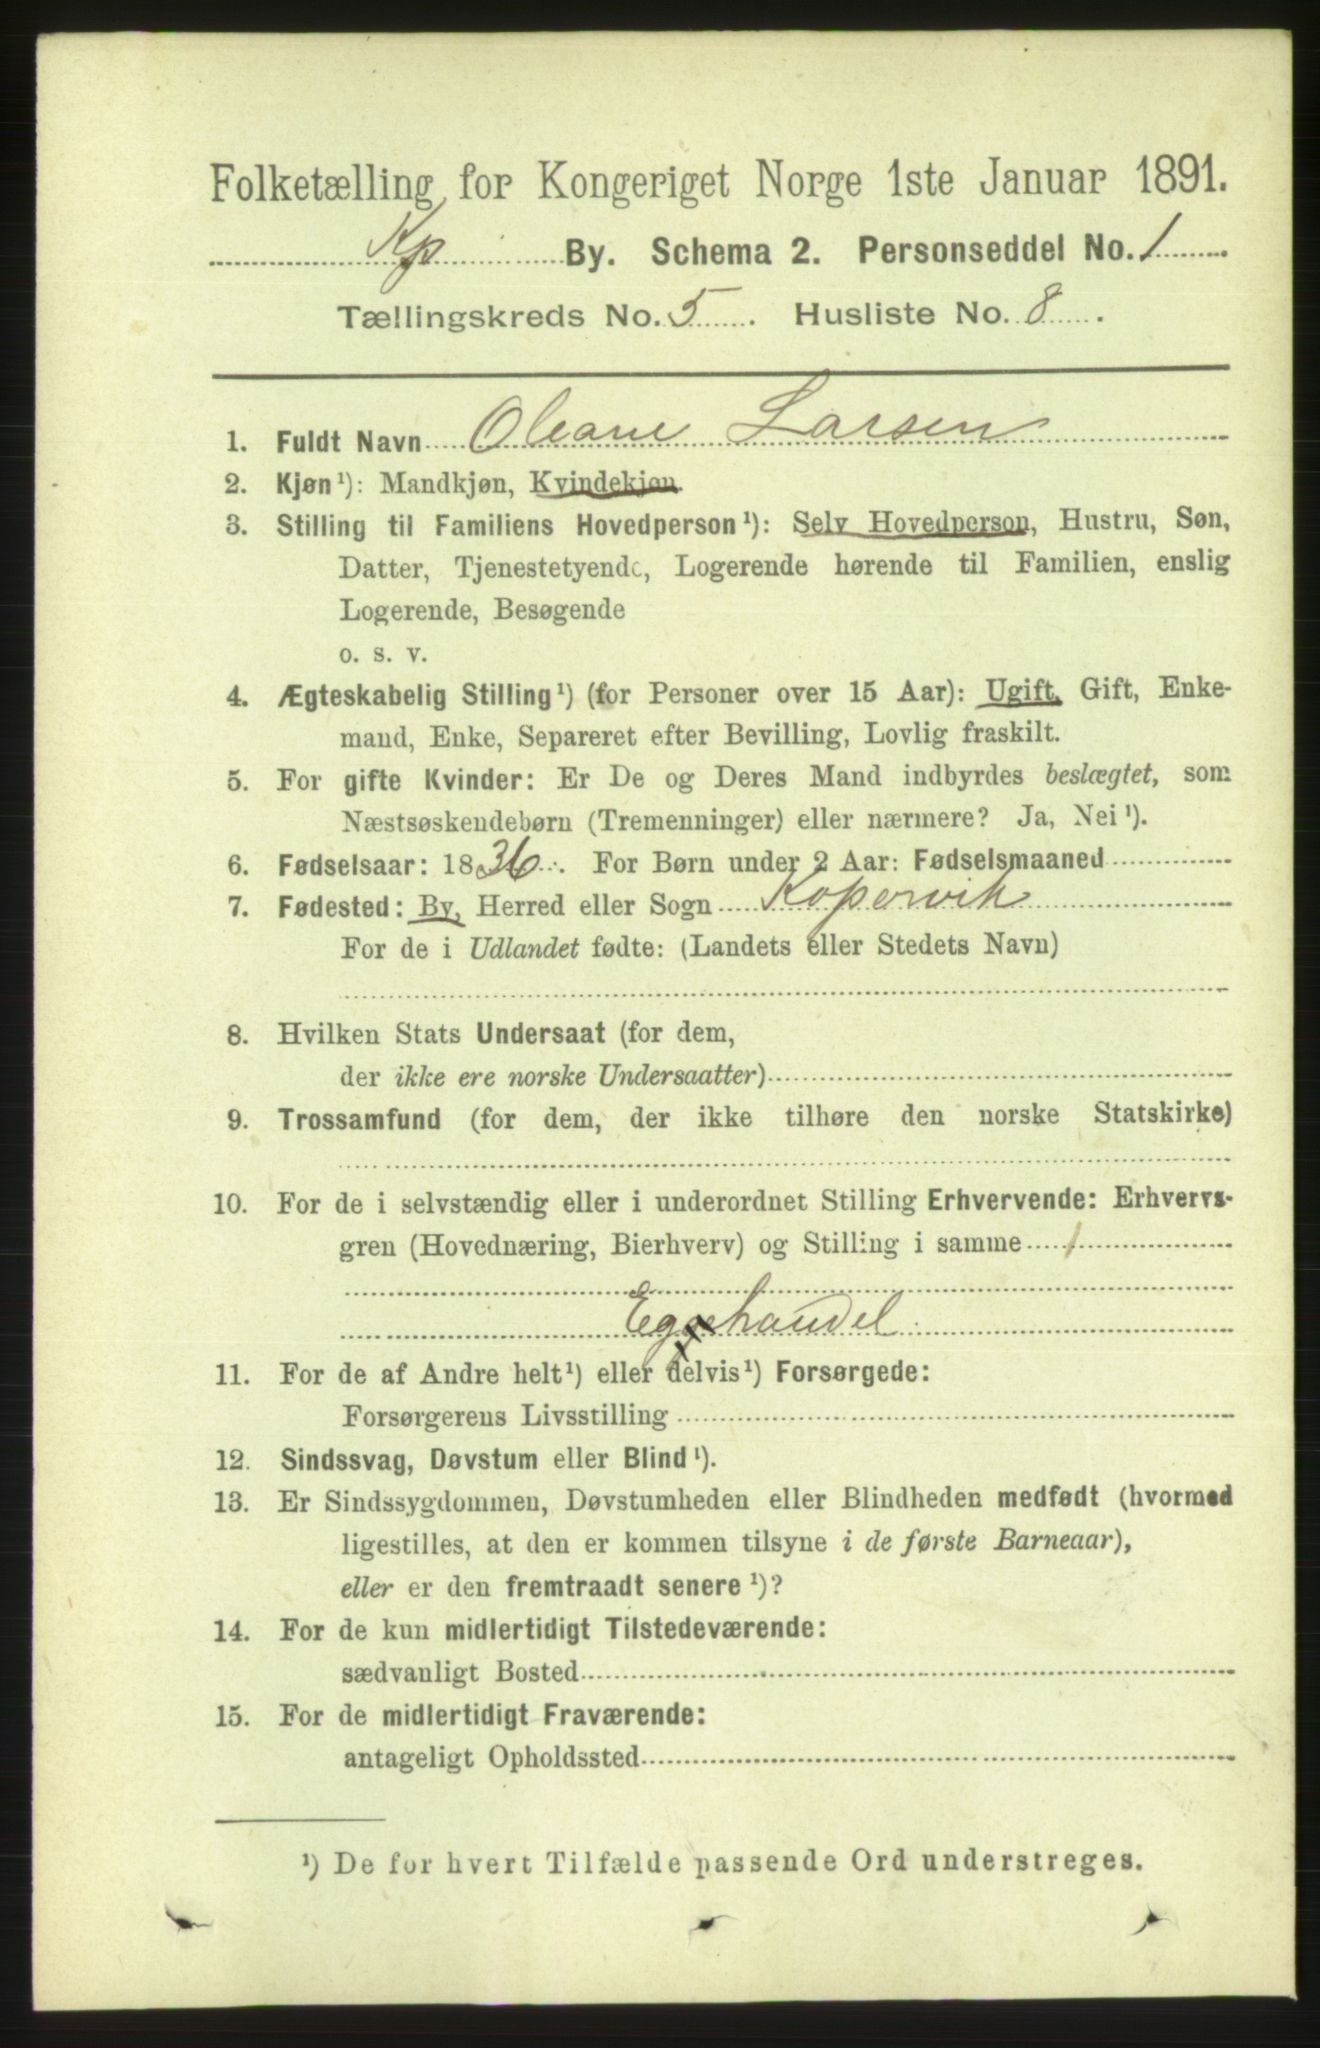 Folketælling for Kongeriget Norge 1ste Januar 1891.
Kp By. Schema 2. Personseddel No. 1
Tællingskreds No. 5. Husliste No. 8.
1. Fuldt Navn Oleane Larsen
2. Kjøn¹): Mandkjøn, Kvindekjøn.
3. Stilling til Familiens Hovedperson¹): Selv Hovedperson, Hustru, Søn,
Datter, Tjenestetyende, Logerende hørende til Familien, enslig
Logerende, Besøgende
o. s. v.
4. Ægteskabelig Stilling¹) (for Personer over 15 Aar): Ugift, Gift, Enke-
mand, Enke, Separeret efter Bevilling, Lovlig fraskilt.
5. For gifte Kvinder: Er De og Deres Mand indbyrdes beslægtet, som
Næstsøskendebørn (Tremenninger) eller nærmere? Ja, Nei¹).
6. Fødselsaar: 1836. For Børn under 2 Aar: Fødselsmaaned
7. Fødested: By, Herred eller Sogn Kopervik
For de i Udlandet fødte: (Landets eller Stedets Navn)
8. Hvilken Stats Undersaat (for dem,
der ikke ere norske Undersaatter)
9. Trossamfund (for dem, der ikke tilhøre den norske Statskirke)
10. For de i selvstændig eller i underordnet Stilling Erhvervende: Erhvervs-
gren (Hovednæring, Bierhverv) og Stilling i samme 1
Eggehandel
11. For de af Andre helt¹) eller delvis¹) Forsørgede:
Forsørgerens Livsstilling
12. Sindssvag, Døvstum eller Blind¹).
13. Er Sindssygdommen, Døvstumheden eller Blindheden medfødt (hvormed
ligestilles, at den er kommen tilsyne i de første Barneaar),
eller er den fremtraadt senere¹)?
14. For de kun midlertidigt Tilstedeværende:
sædvanligt Bosted
15. For de midlertidigt Fraværende:
antageligt Opholdssted
¹) De for hvert Tilfælde passende Ord understreges.